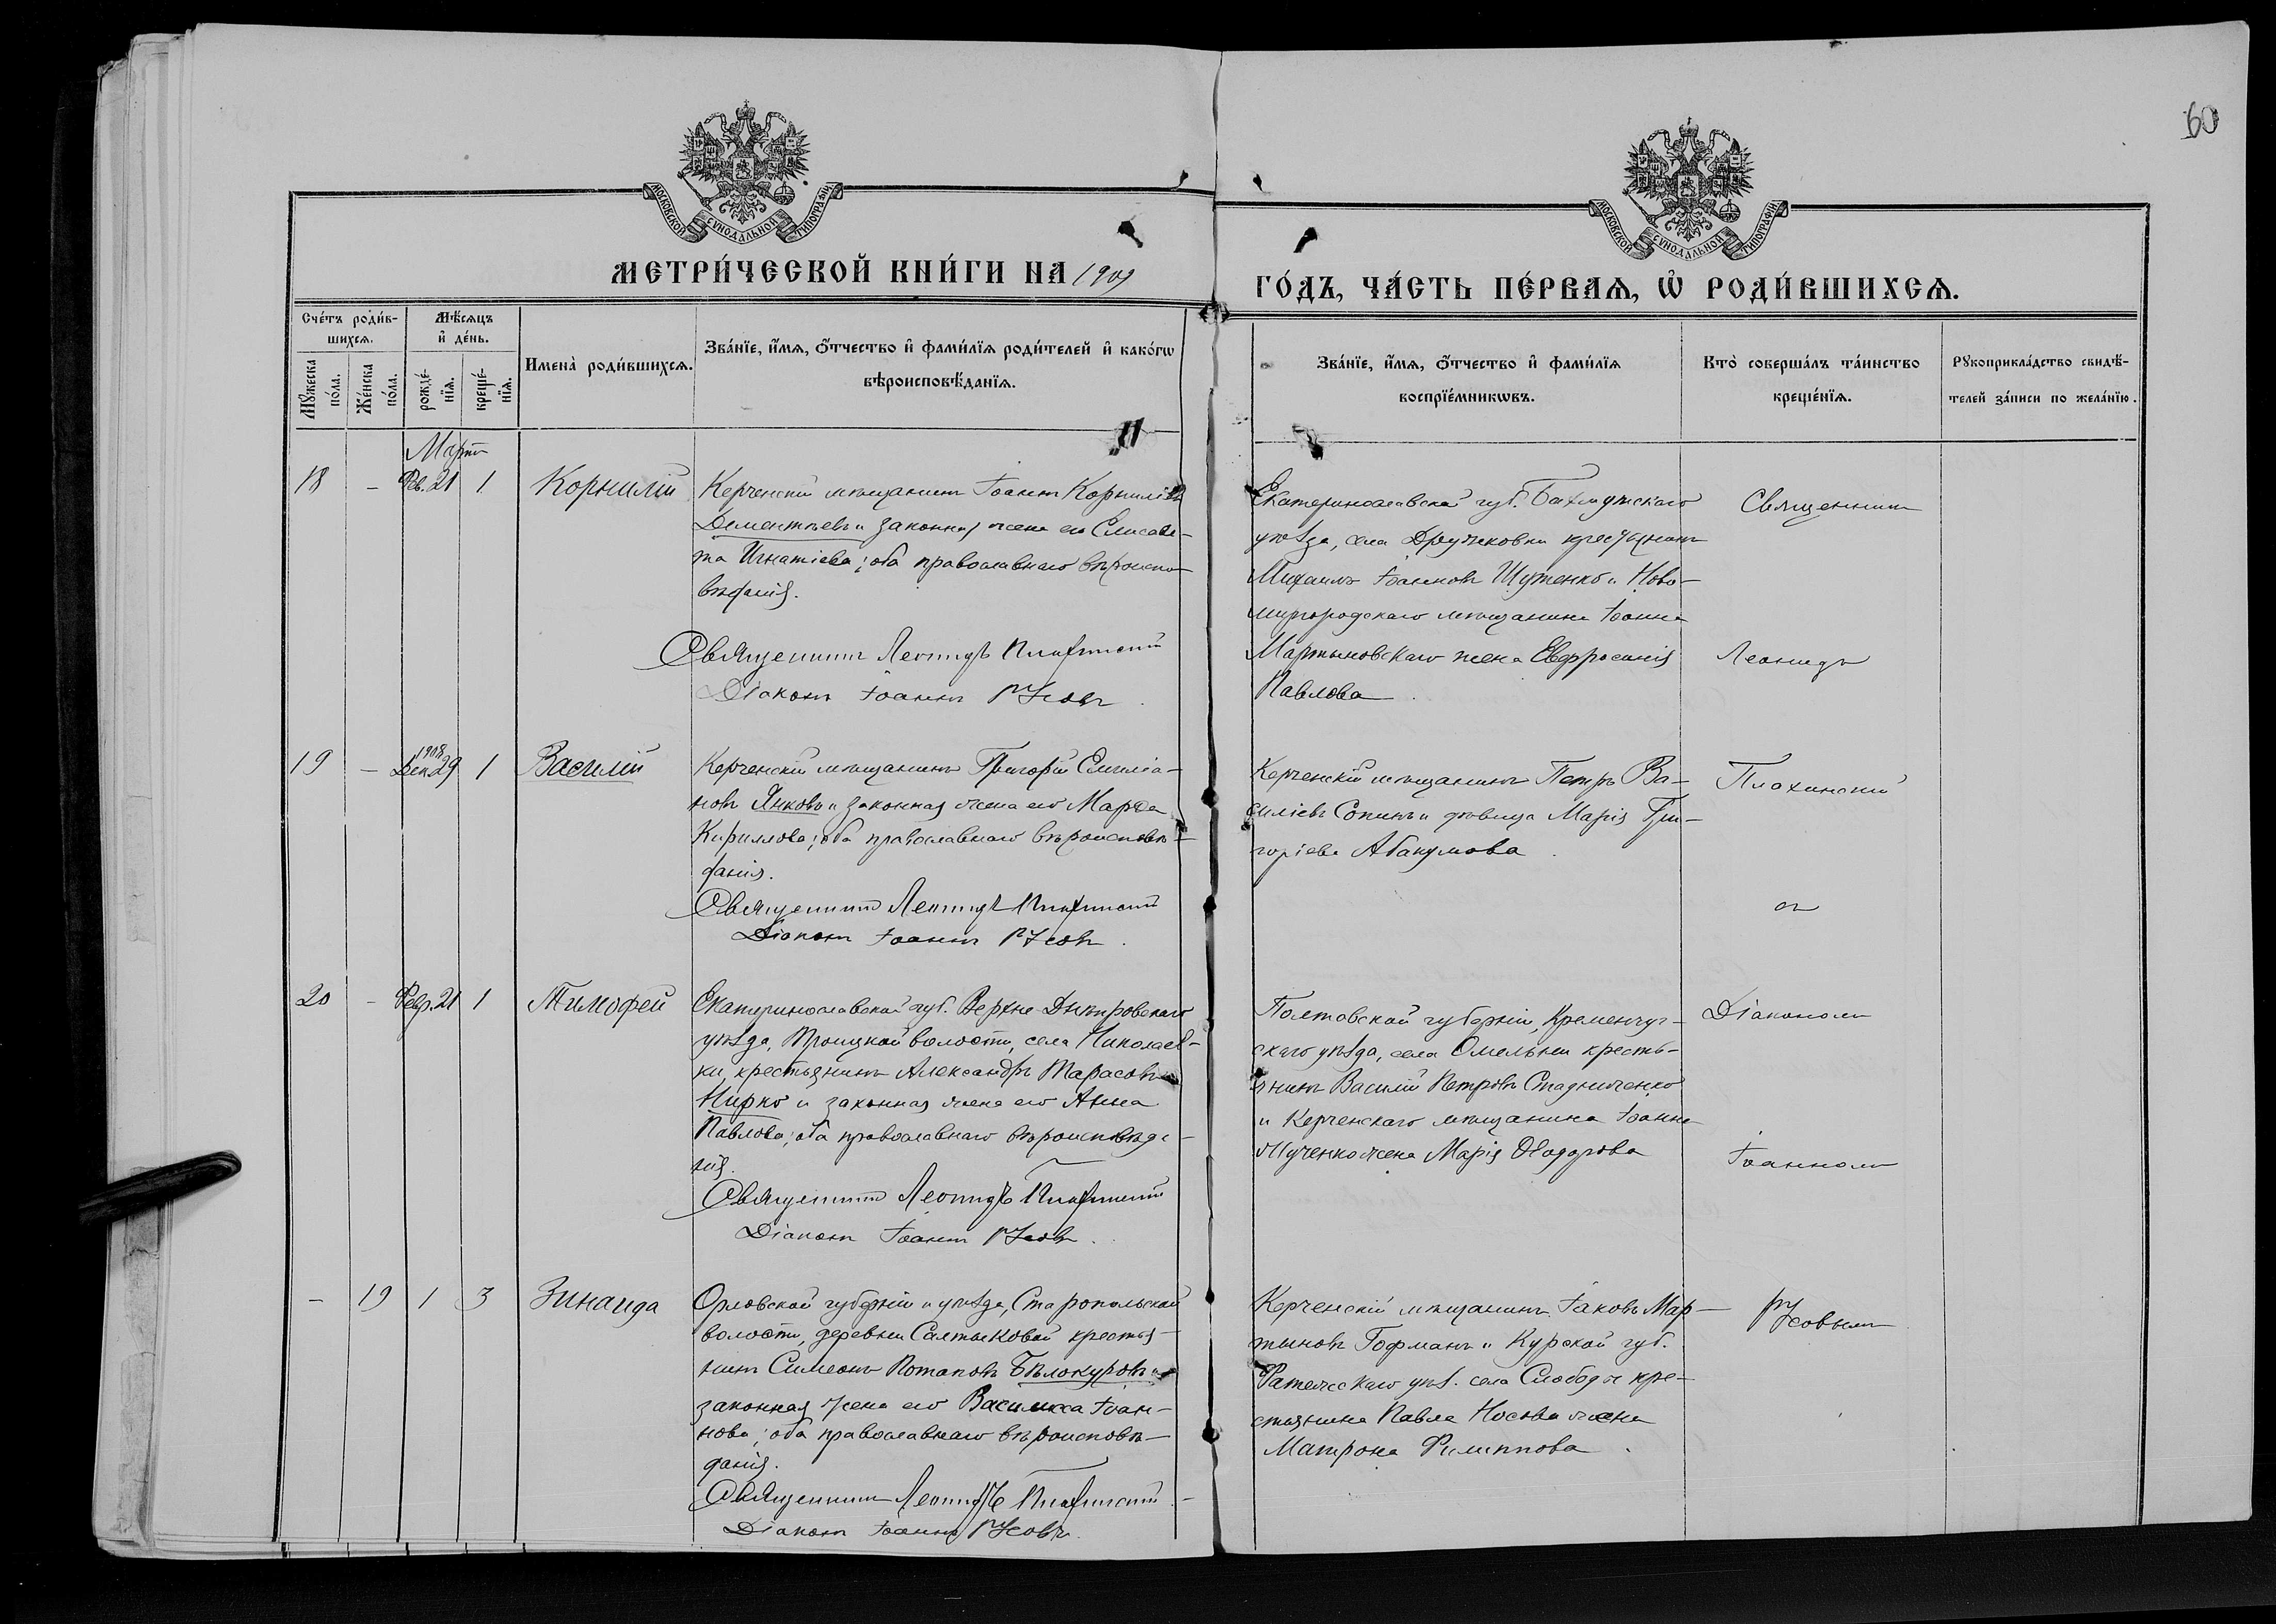 60
МОСКОВСКОЙ СѴНОДАЛЬНОЙ ТИПОГРАФІИ
МОСКОВСКОЙ СѴНОДАЛЬНОЙ ТИПОГРАФІИ
МЕТРИ́ЧЕСКОЙ КНИ́ГИ НА 1909
ГО́ДЪ, ЧА́СТЬ ПЕ́РВАѦ, Ѡ҆ РОДИ́ВШИХСѦ.
Сче́тъ роди́в-
шихсѧ.
Мꙋжеска по́ла.
Же́нска по́ла.
Мѣ́сѧцъ
и҆ де́нь.
рожде́-
нїѧ.
креще́-
нїѧ.
Имена̀ роди́вшихсѧ.
Зва́нїе, и҆́мѧ, ѻ҆́тчество и҆ фами́лїѧ роди́телей и҆ како́гѡ
вѣроисповѣ́данїѧ.
Зва́нїе, и҆́мѧ, ѻ҆́тчество и҆ фами́лїѧ
воспрїе́мникѡвъ.
Кто̀ соверша́лъ та́инство
креще́нїѧ.
Рꙋкоприкла́дство свидѣ́-
телей за́писи по жела́нїю.
Мартъ
18 – Фев. 21 1 Корнилій
Керченскій мѣщанинъ Іоаннъ Корниліевъ
Дементьевъ и законная жена его Елисаве-
та Игнатіева; оба православнаго вѣроиспо-
вѣданія.
Священникъ Леонидъ Плахинскій
Діаконъ Іоаннъ Русовъ.
Екатеринославской губ. Бахмутскаго
уѣзда, села Дружковки крестьянинъ
Михаилъ Іоанновъ Шутенко и Ново-
миргородскаго мѣщанина Іоанна
Мартыновскаго жена Евфросинія
Павлова.
Священникъ
Леонидъ
19 – 1908 Дек. 29 1 Василій
Керченскій мѣщанинъ Григорій Емиліа-
новъ Янковъ и законная жена его Марѳа
Кириллова; оба православнаго вѣроисповѣ-
данія.
Священникъ Леонидъ Плахинскій
Діаконъ Іоаннъ Русовъ.
Керченскій мѣщанинъ Петръ Ва-
силіевъ Сопинъ и дѣвица Марія Гри-
горіева Абакумова.
Плахинскій
съ
20 – Февр. 21 1 Тимофей
Екатеринославской губ. Верхне-Днѣпровскаго
уѣзда, Троицкой волости, села Николаев-
ки, крестьянинъ Александръ Тарасовъ
Нирко и законная жена его Анна
Павлова; оба православнаго вѣроисповѣда-
нія.
Священникъ Леонидъ Плахинскій
Діаконъ Іоаннъ Русовъ.
Полтавской губерніи, Кременчуг-
скаго уѣзда, села Омельни кресть-
янинъ Василій Петровъ Стадниченко
и Керченскаго мѣщанина Іоанна
жена Марія Ѳеодорова
Діакономъ
Іоанномъ
– 19 1 3 Зинаида
Орловской губерніи и уѣзда, Старопольской
волости, деревни Салтыковой крестья-
нинъ Симеонъ Потаповъ Бѣлокуровъ и
законная жена его Василисса Іоан-
нова; оба православнаго вѣроисповѣ-
данія.
Священникъ Леонидъ Плахинскій
Діаконъ Іоаннъ Русовъ.
Керченскій мѣщанинъ Іаковъ Мар-
тыновъ Гофманъ и Курской губ.
Фатежскаго уѣз. села Слободы кре-
стьянина Павла Носова жена
Матрона Филиппова.
Русовымъ